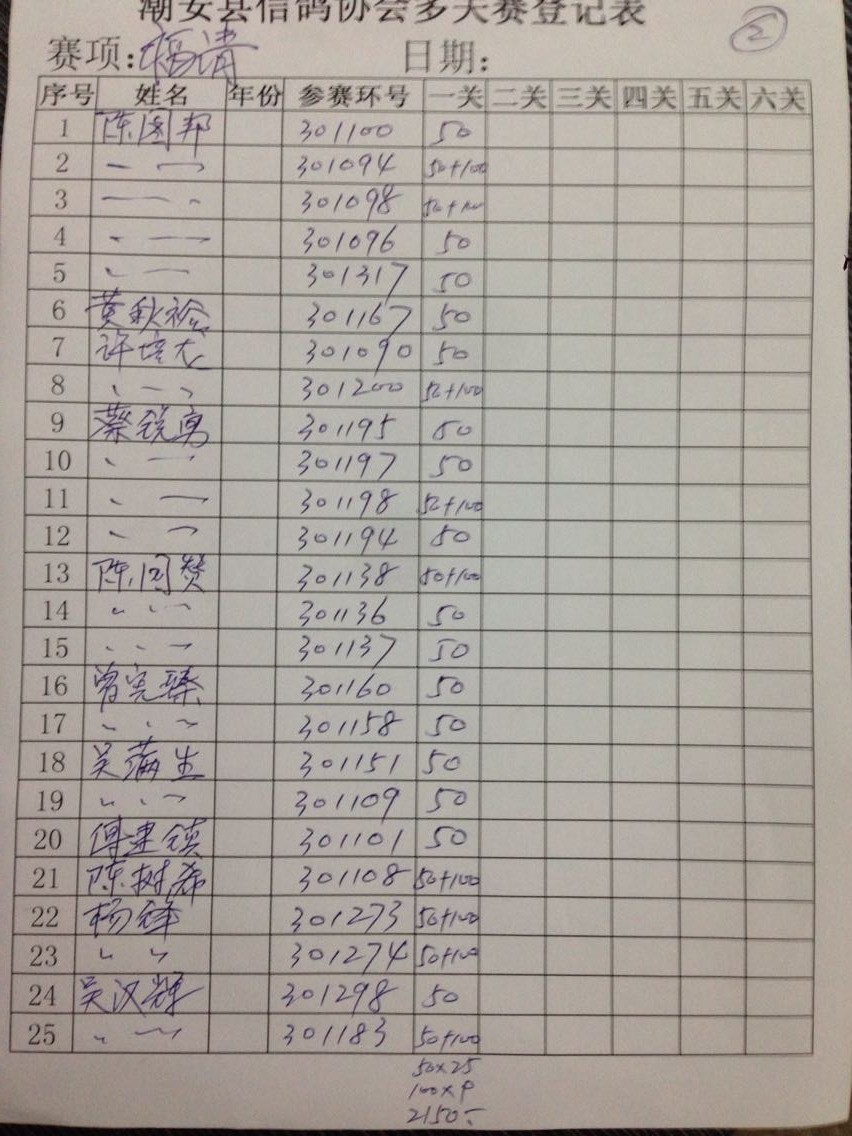 潮安县信鸽协会多关赛登记表
②
赛项:福清 日期:
序号 姓名 年份 参赛环号 一关 二关 三关 四关 五关 六关
1 陈国邦 301100 50
2 301094 50+100
3 301098 50+100
4 301096 50
5 301317 50
6 黄秋裕 301167 50
7 许培尤 301090 50
8 301200 50+100
9 蔡锐勇 301195 50
10 301197 50
11 301198 50+100
12 301194 50
13 陈国赞 301138 50+100
14 301136 50
15 301137 50
16 曾宪臻 301160 50
17 301158 50
18 吴满生 301151 50
19 301109 50
20 傅建镇 301101 50
21 陈树希 301108 50+100
22 杨锋 301273 50+100
23 〃 〃 301274 50+100
24 吴汉辉 301298 50
25 301183 50+100
50×25
100×9
2150-